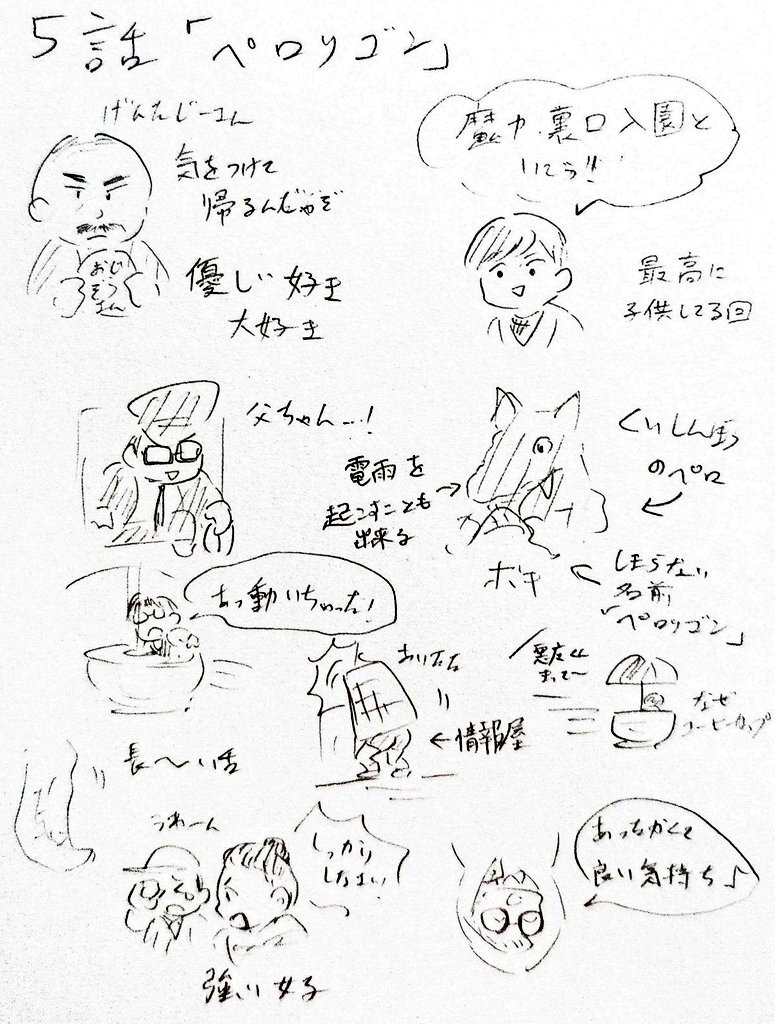 5話「ペロリゴン」
げんたじーさん
気をつけて
帰るんじゃぞ
おじ
ぞう
さん
優しい 好き
大好き
魔力 裏口入園と
いこう!!
最高に
子供してる回
父ちゃん…!
電雨を
起こすことも
出来る
くいしん坊
のペロ
ポキ
しまらない
名前
「ペロリゴン」
あっ動いちゃった!
あいたた
←情報屋
悪左くん
まって〜
なぜ
コーヒーカップ
長〜い舌
うわーん
しっかり
しなさい
強い女子
あっちかくて
良い気持ち♪